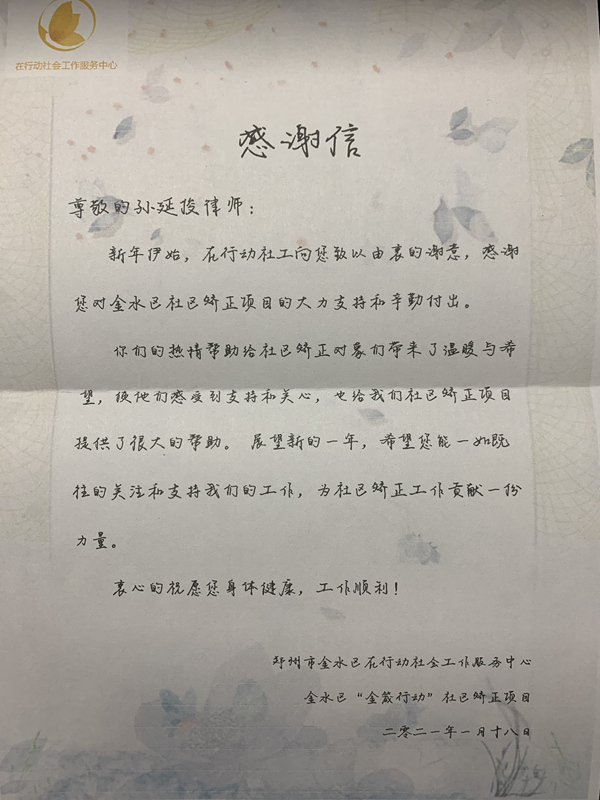 在行动社会工作服务中心
感谢信
尊敬的孙延俊律师：
新年伊始，在行动社工向您致以由衷的谢意，感谢
您对金水区社区矫正项目的大力支持和辛勤付出。
你们的热情帮助给社区矫正对象们带来了温暖与希
望，使他们感受到支持和关心，也给我们社区矫正项目
提供了很大的帮助。展望新的一年，希望您能一如既
往的关注和支持我们的工作，为社区矫正工作贡献一份
力量。
衷心的祝愿您身体健康，工作顺利！
郑州市金水区在行动社会工作服务中心
金水区“金箴行动”社区矫正项目
二零二一年一月十八日